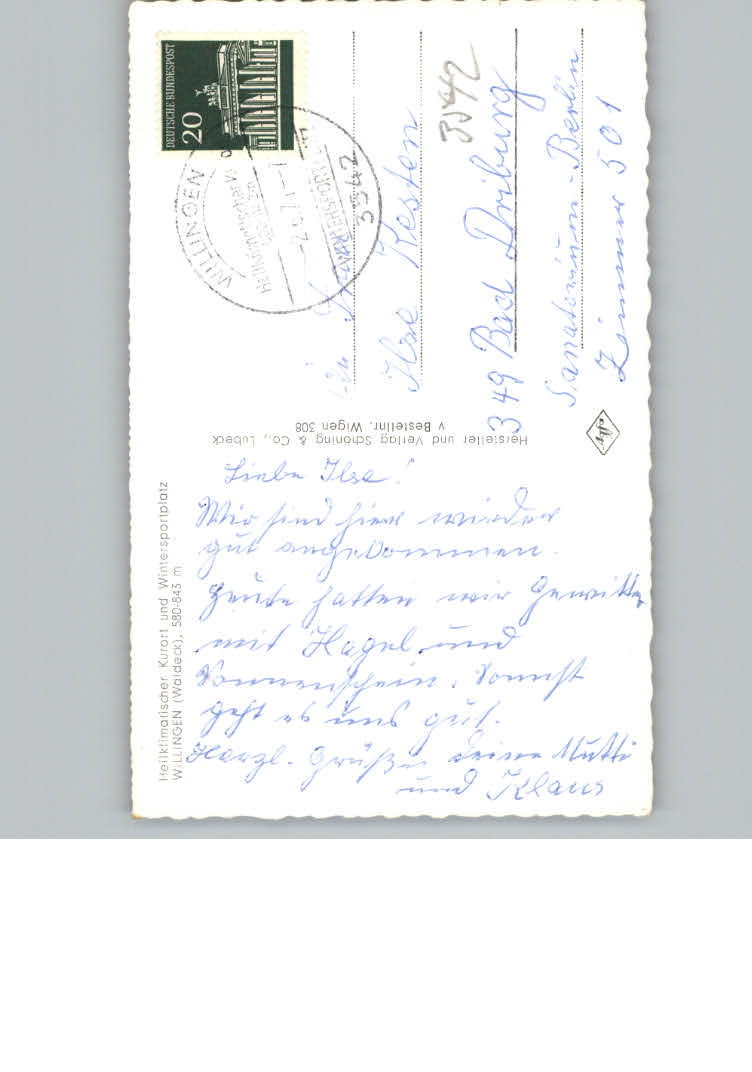 Heilklimatischer Kurort und Wintersportplatz
WILLINGEN (Waldeck), 580-843 m
Liebe Ilse!
Wir sind hier wieder
gut angekommen.
Heute hatten wir Gewitter
mit Hagel und
Sonnenschein. Sonnst
geht es uns gut.
Herzl. Grüße deine Mutti
und Klaus
Hersteller und Verlag Schöning & Co., Lübeck
v Bestellnr. Wigen 308
DEUTSCHE BUNDESPOST
20
WILLINGEN
HEILKLIMATISCHER
3542
3542
Frau
Ilse Kesten
349 Bad Driburg
Sanatorium-Berlin
Zimmer 501